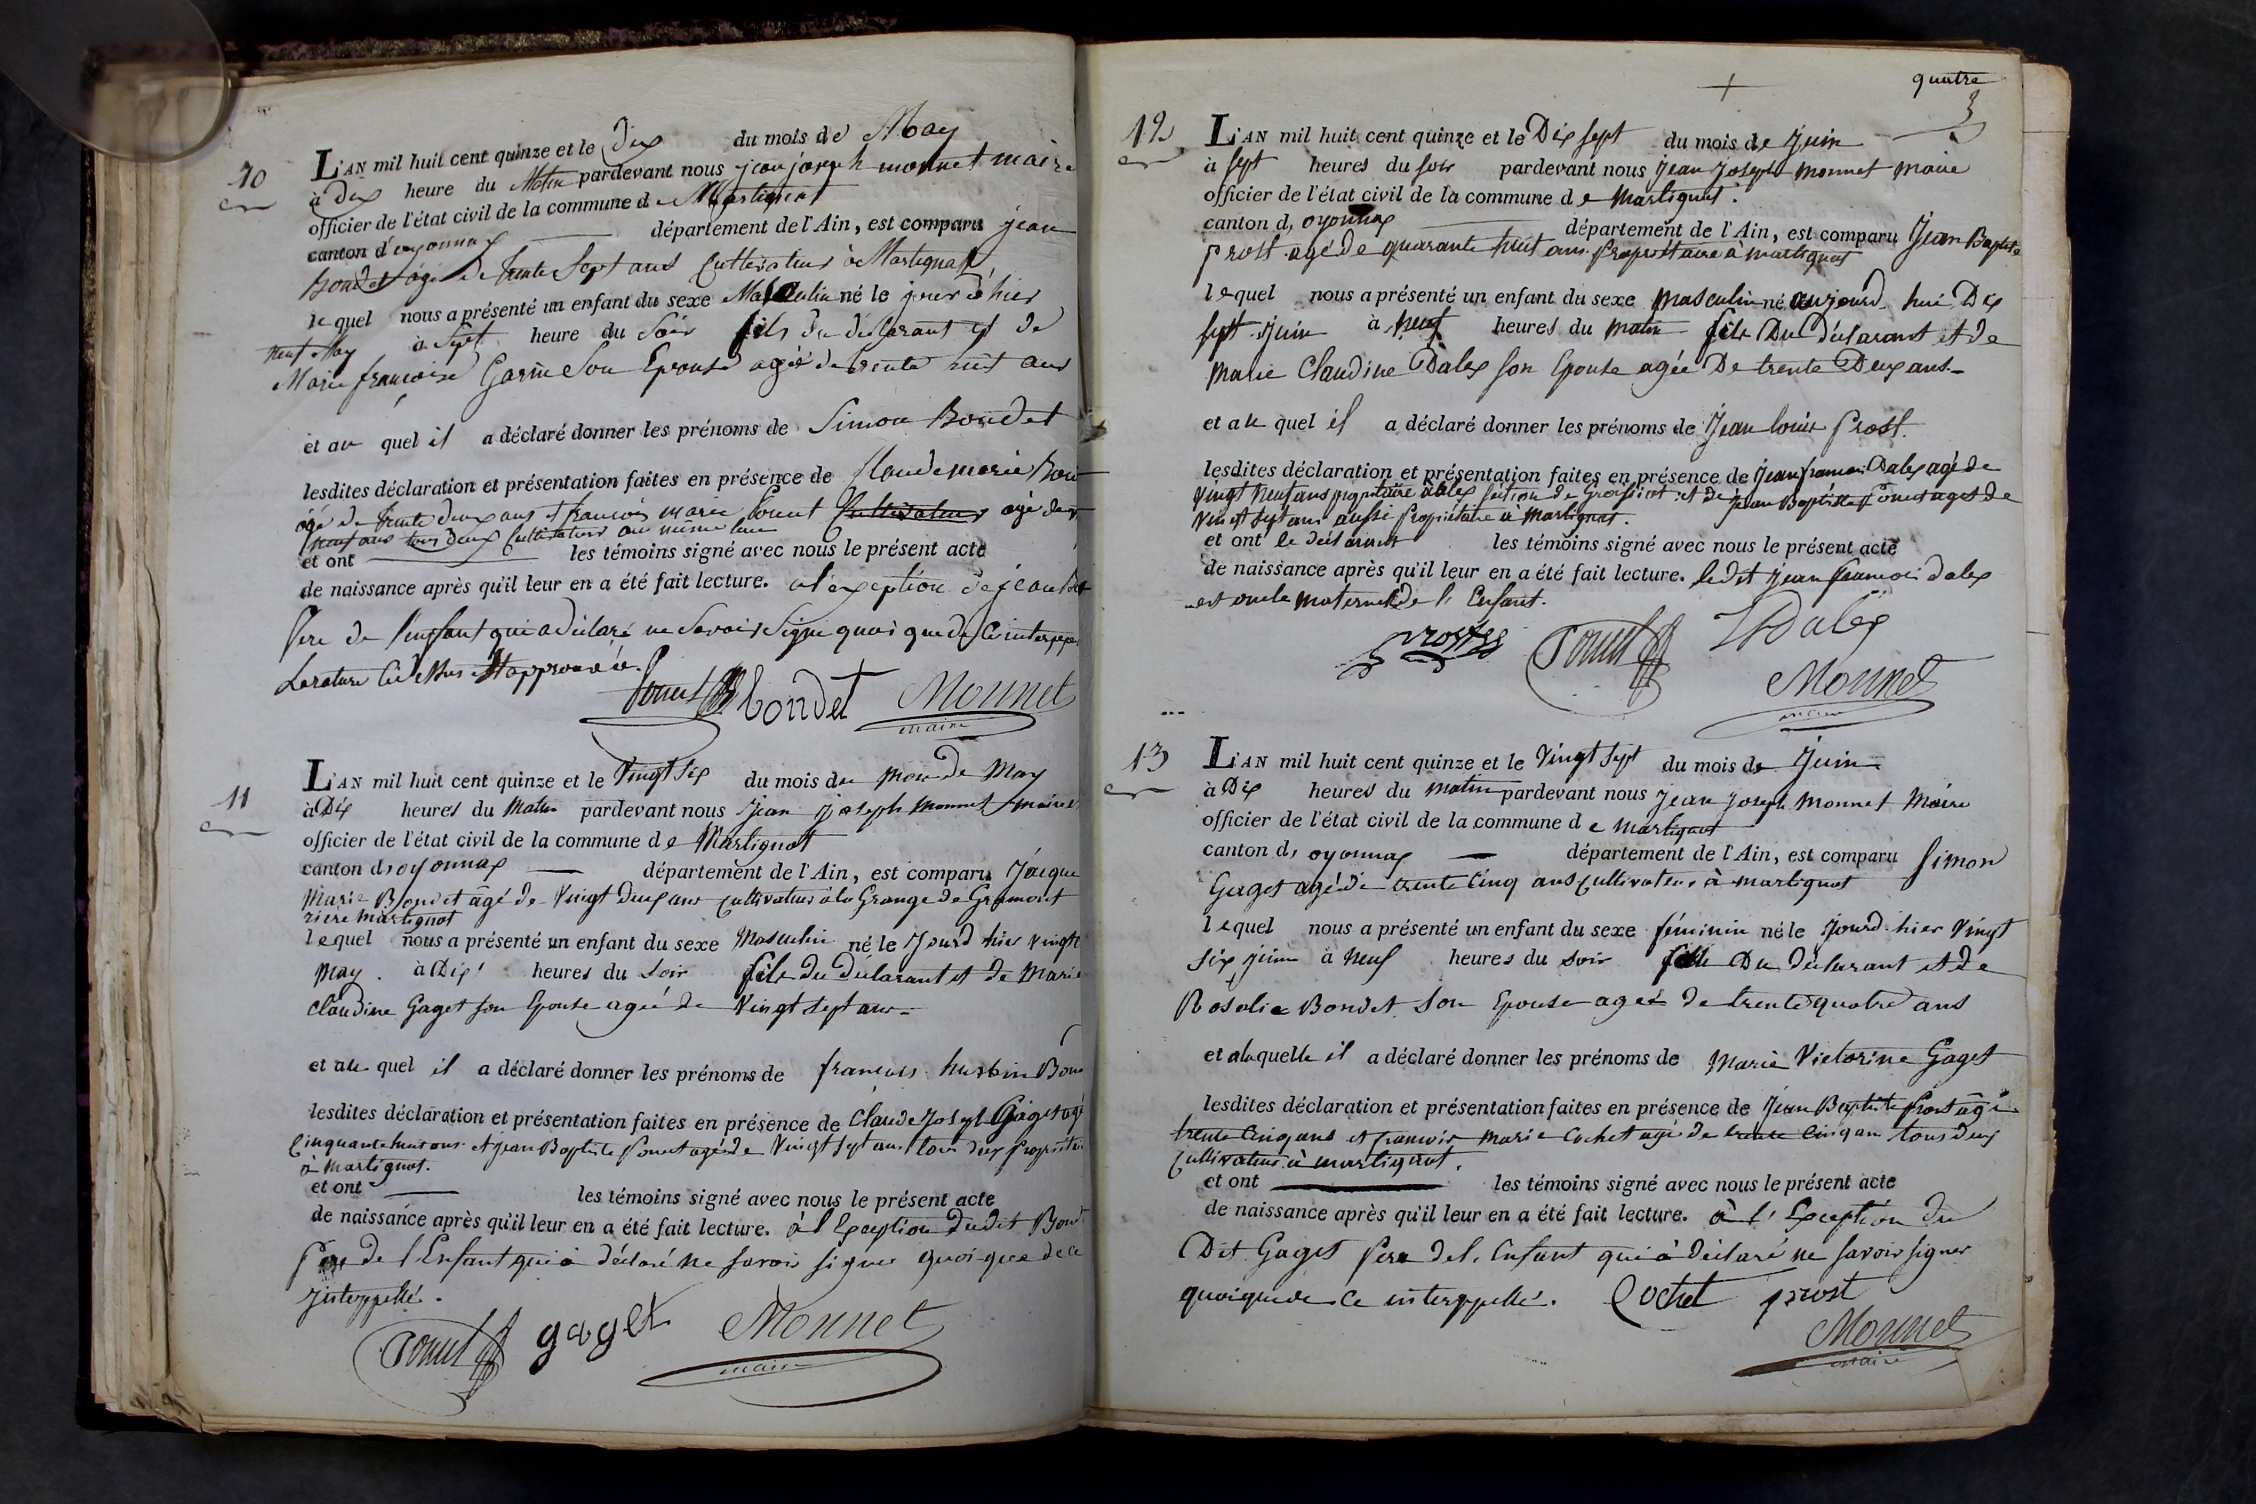 10
L'AN mil huit cent quinze et le dix du mois de May
à dix heure du Matin pardevant nous jean joseph monnet maire
officier de l'état civil de la commune de Martignat
canton d'oyonnax département de l'Ain, est comparu jean
Bondet âgé de trente Sept ans Cultivateur à Martignat
le quel nous a présenté un enfant du sexe Masculin né le jour d'hier
neuf May à Sept heure du Soir fils du déclarant et de
Marie françoise Garin Son Epouse agée de trente huit ans
et au quel il a déclaré donner les prénoms de Simon Bondet
lesdites déclaration et présentation faites en présence de Claude marie Bon
âgé de trente deux ans et francois marie Ponct Cultivateur agé de
neuf ans tous deux Cultivateurs au même lieu
et ont les témoins signé avec nous le présent acte
de naissance après qu'il leur en a été fait lecture. a l'exception de jean
Pere de l'enfant qui a déclaré ne Savoir Signer quoi que de Ce interpe
La rature Ci dessus approuvée.
Ponct Bondet Monnet
maire
11
L'AN mil huit cent quinze et le Vingt six du mois du mois de May
à Dix heures du Matin pardevant nous Jean Joseph Monnet maire
officier de l'état civil de la commune de Martignat
canton d'oyonnax département de l'Ain, est comparu Jacque
Marie Bondet âgé de Vingt Deux ans Cultivateur à la Grange de Gramont
riere Martignat
lequel nous a présenté un enfant du sexe Masculin né le Jourd'hier vingt
May. à Dix heures du Soir fils du Déclarant et de Marie
Claudine Gaget son Epouse agée de Vingt sept ans
et au quel il a déclaré donner les prénoms de francois Bon
lesdites déclaration et présentation faites en présence de Claude Joseph Gaget agé
Cinquante huit ans et Jean Baptiste Ponct agé de Vingt sept ans tous deux Propriétai
à Martignat.
et ont les témoins signé avec nous le présent acte
de naissance après qu'il leur en a été fait lecture. à l'Exception dudit Bond
Pere de l'Enfant qui a déclaré ne savoir signer quoi que de ce
Interppellé.
Ponct gaget Monnet
maire
quatre
3
12
L'AN mil huit cent quinze et le Dix sept du mois de Juin
à sept heures du soir pardevant nous Jean Joseph Monnet Maire
officier de l'état civil de la commune de Martignat.
canton d, oyonnax département de l'Ain, est comparu Jean Baptiste
Prost agé de quarante huit ans Propriétaire à Martignat
lequel nous a présenté un enfant du sexe masculin né aujourd'hui Dix
sept Juin à Neuf heures du matin fils Du déclarant et de
Marie Claudine Dalex son Epouse agée De trente Deux ans
et au quel il a déclaré donner les prénoms de Jean louis Prost.
lesdites déclaration et présentation faites en présence de Jean francois Dalex agé de
Vingt Neuf ans propriétaire à Alex section de Groissiat et de Jean Baptiste Ponct agé de
Vingt Sept ans aussi Propriétaire à Martignat.
et ont le déclarant les témoins signé avec nous le présent acte
de naissance après qu'il leur en a été fait lecture. ledit Jean francois dalex
est oncle maternel de l'Enfant.
Prost Ponct Dalex
Monnet
maire
13
L'AN mil huit cent quinze et le Vingt sept du mois de Juin
à Dix heures du matin pardevant nous Jean Joseph Monnet Maire
officier de l'état civil de la commune de Martignat
canton d, oyonnax département de l'Ain, est comparu Simon
Gaget agé de trente Cinq ans Cultivateur à Martignat
lequel nous a présenté un enfant du sexe féminin né le Jourd'hier Vingt
six juin à Neuf heures du soir fille Du déclarant et de
Rosalie Bondet Son Epouse agée de trente quatre ans
et a laquelle il a déclaré donner les prénoms de Marie Victorine Gaget
lesdites déclaration et présentation faites en présence de Jean Baptiste Prost agé
trente Cinq ans et francois Marie Cochet agé de trente Cinq an tous deux
Cultivateurs à Martignat.
et ont les témoins signé avec nous le présent acte
de naissance après qu'il leur en a été fait lecture. à l'Exception du
Dit Gaget Pere de l'Enfant qui à déclaré ne savoir signer
quoique de Ce interppellé. Cochet prost
Monnet
maire